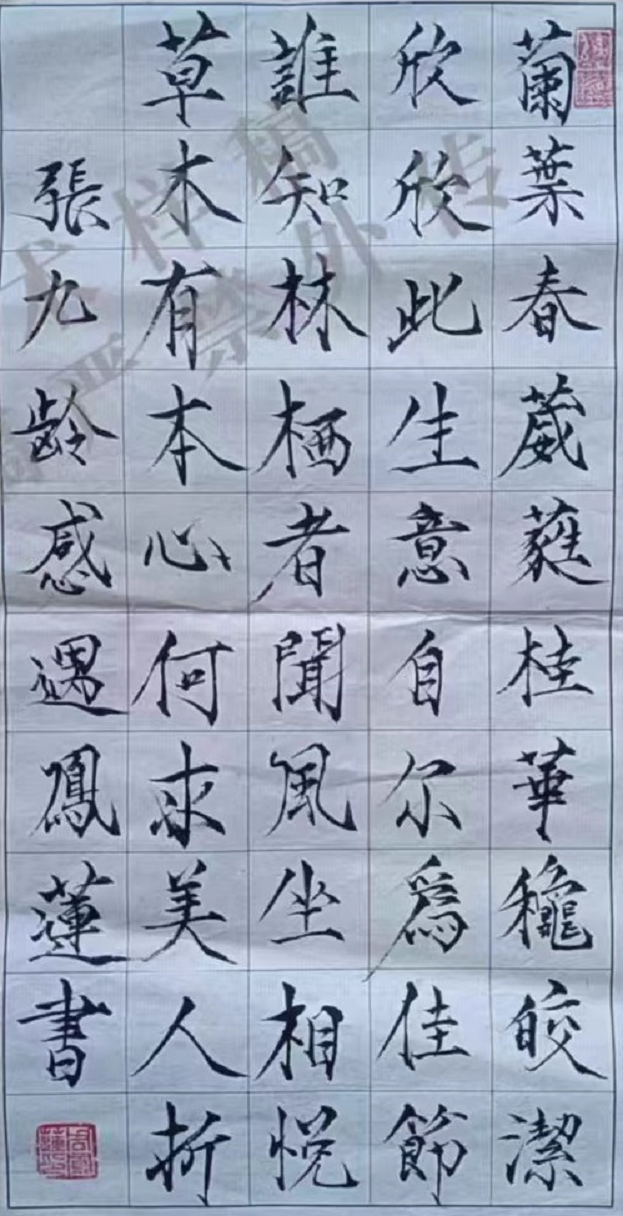 蘭葉春葳蕤桂華龝皎潔
欣欣此生意自尔爲佳節
誰知林栖者聞風坐相悦
草木有本心何求美人折
張九齡感遇鳳蓮書